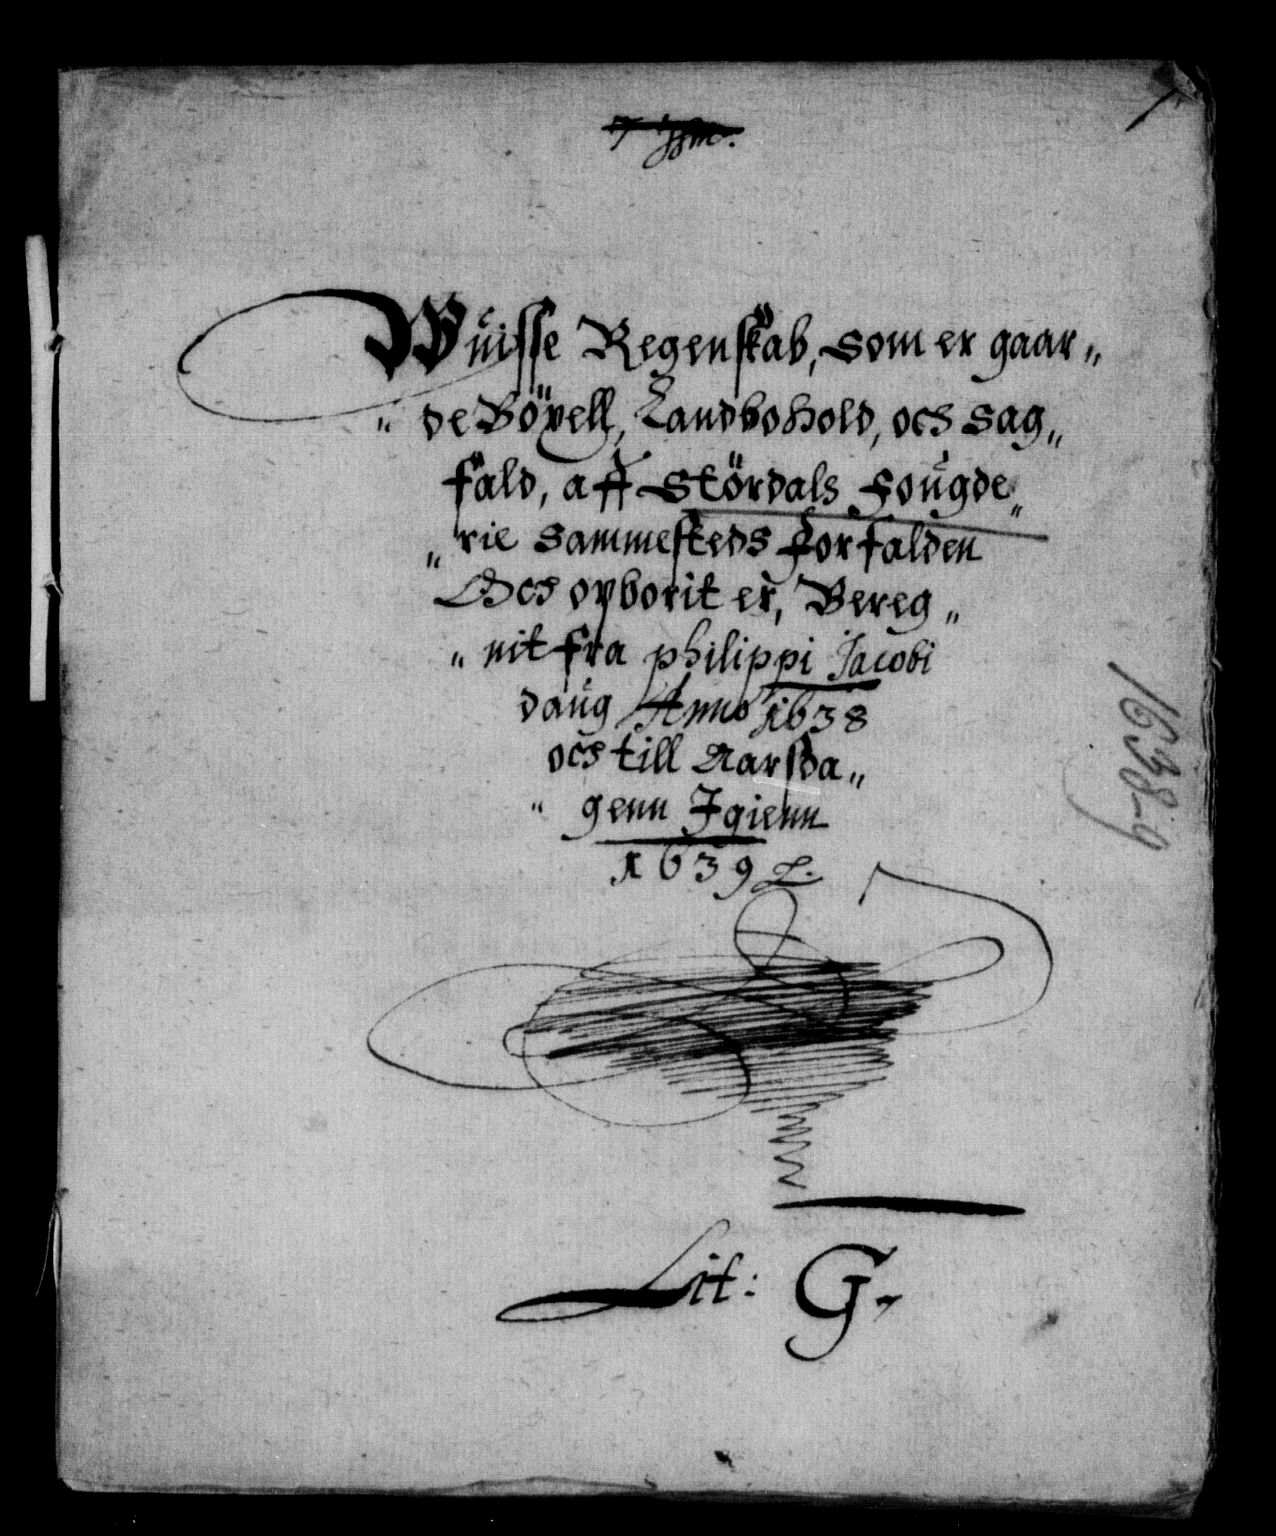 Wüisse Regenskab, som er gaar„
„ de Böxell, Landbohold, och sag„
fald, aff Stördals Foügde„
„ rie sammesteds forfalden
Och opborit er, Bereg„
„ nit fra philippi Jacobi
daüg Anno 1638
och till Aarsda„
„ genn Igienn
1639
Lit: G.
1638-9